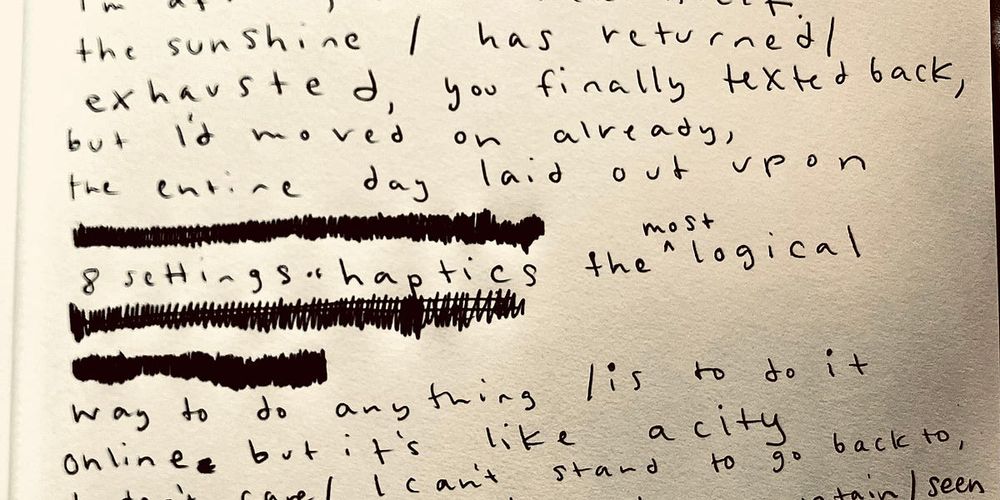 I'm
the sunshine / has returned/
exhausted, you finally texted back,
but I'd moved on already,
the entire day laid out upon
8 settings of haptics the ^most logical
way to do anything /is to do it
online. but it's like a city
I can't stand to go back to,
/seen